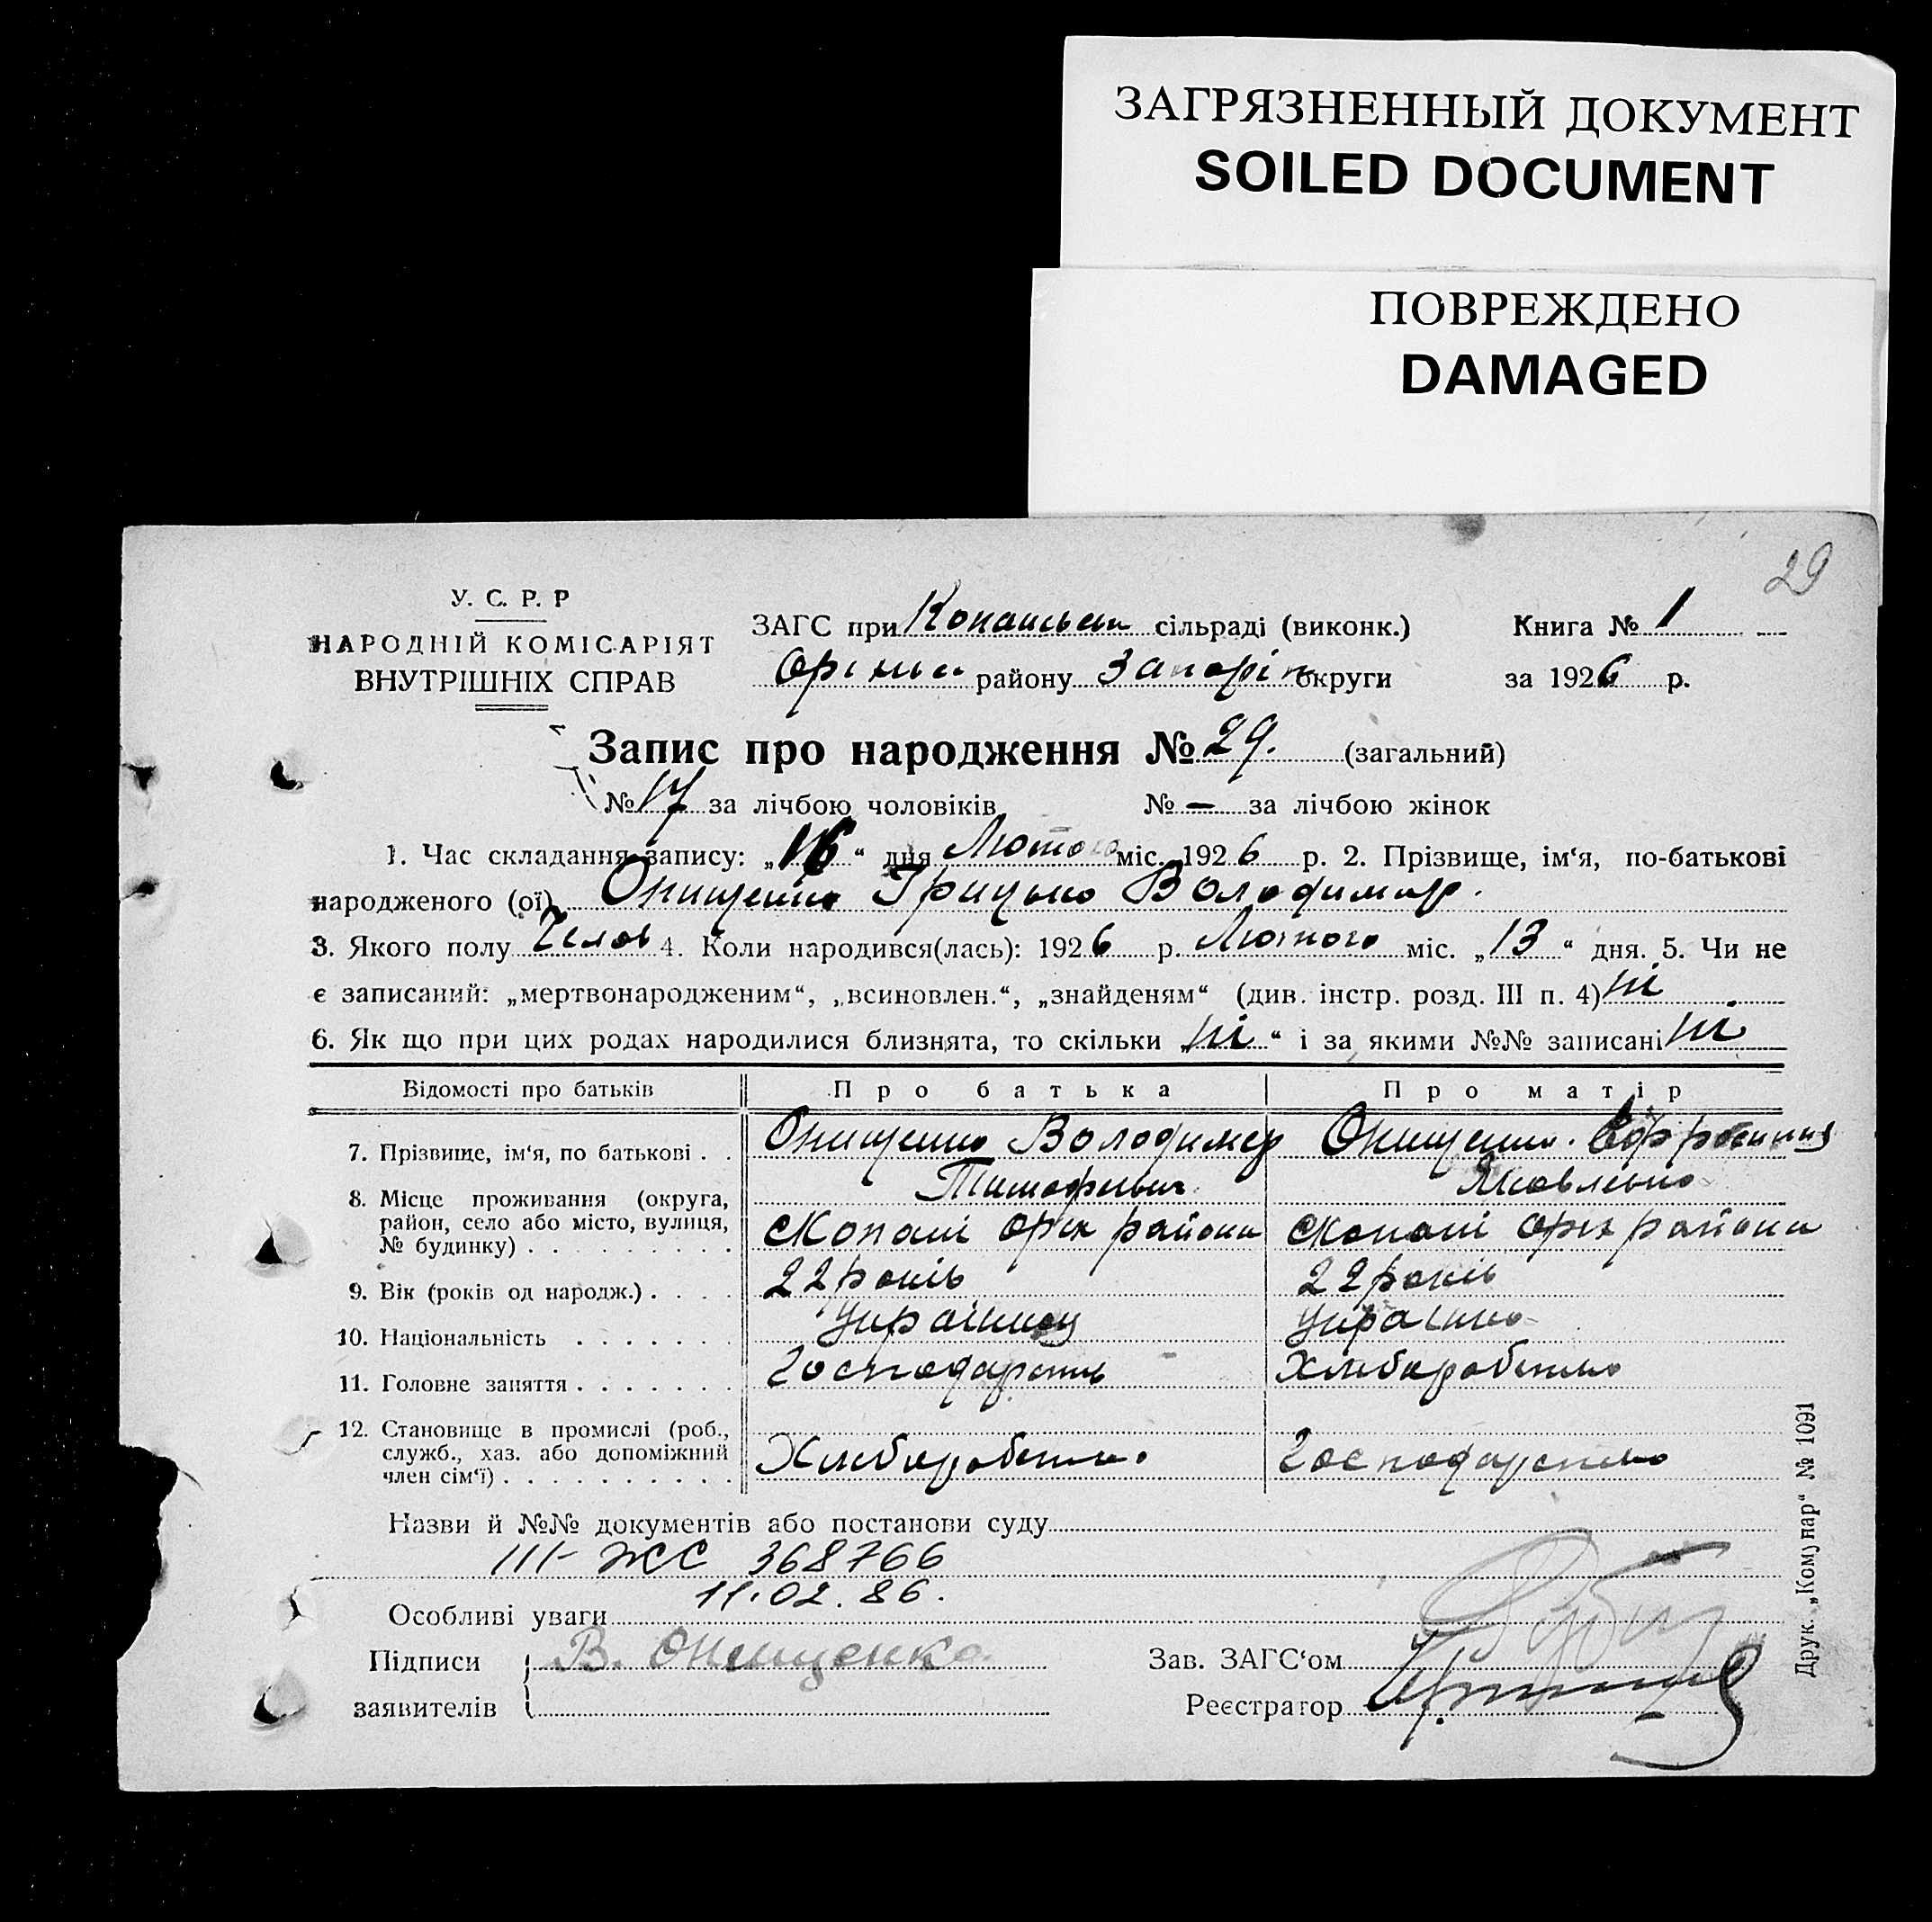 ЗАГРЯЗНЕННЫЙ ДОКУМЕНТ
SOILED DOCUMENT
ПОВРЕЖДЕНО
DAMAGED
29
У. С. Р. Р
НАРОДНІЙ КОМІСАРІЯТ
ВНУТРІШНІХ СПРАВ
ЗАГС при сільраді (виконк.) Книга № 1
району Запоріж округи за 1926 р.
Запис про народження № 29. (загальний)
№ 17 за лічбою чоловіків № — за лічбою жінок
1. Час складання запису: „16“ дня Лютого міс. 1926 р. 2. Прізвище, ім‘я, по-батькові
народженого (ої) Онищенко Грицько Володимир.
3. Якого полу Челов 4. Коли народився(лась): 1926 р. Лютого міс. „13“ дня. 5. Чи не
є записаний: „мертвонародженим“, „всиновлен.“, „знайденям“ (див. інстр. розд. III п. 4) ні
6. Як що при цих родах народилися близнята, то скільки „ні“ і за якими №№ записані ні
Відомості про батьків Про батька Про матір
7. Прізвище, ім‘я, по батькові . . Онищенко Володимер Онищенко.
Тимофеевич Яковлевна
8. Місце проживання (округа,
район, село або місто, вулиця,
№ будинку) . . . . . . . . . с Копані Оріх района с Копані Оріх района
9. Вік (років од народж.) . . . . 22 років 22 років
10. Національність . . . . . . Українец Українка
11. Головне заняття . . . . . . . Господарство Хліборобство
12. Становище в промислі (роб.,
служб., хаз. або допоміжний
член сім‘ї) . . . . . . . . . . Хліборобство. Господарство
Назви й №№ документів або постанови суду
III-ЖС 368766
11.02.86.
Особливі уваги
Підписи В. Онищенко Зав. ЗАГС‘ом
заявителів Реєстратор
Друк. „Комунар“ № 1091